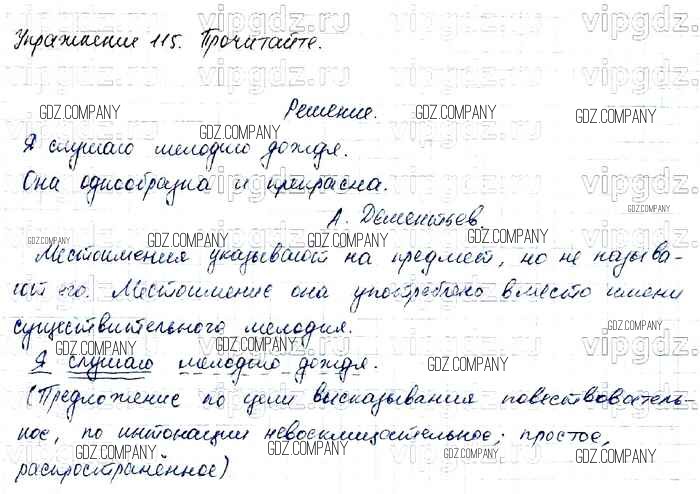 Упражнение 115. Прочитайте.
Решение.
Я слушаю мелодию дождя.
Она однообразна и прекрасна.
А. Дементьев.
Местоимения указывают на предмет, но не называ-
ют его. Местоимение она употреблено вместо имени
существительного мелодия.
Я слушаю мелодию дождя.
(Предложение по цели высказывания повествователь-
ное, по интонации невосклицательное; простое,
распространённое)
vipgdz.ru
GDZ.COMPANY